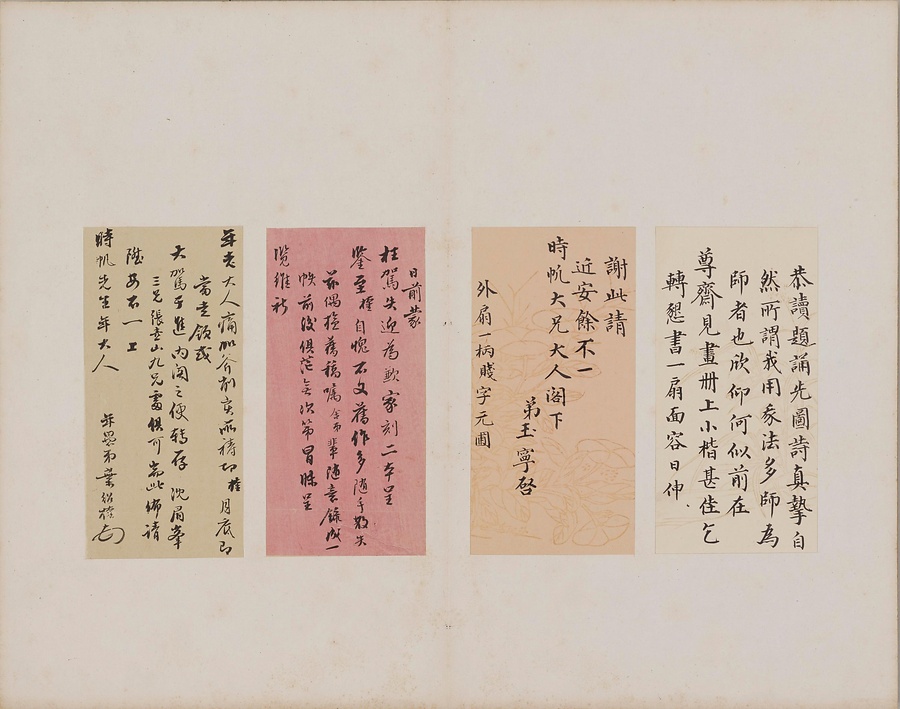 恭讀題誦先圖詩真摯自
然所謂我用我法多師為
師者也欣仰何似前在
尊齋見畫冊上小楷甚佳乞
轉懇書一扇面容日伸
謝此請
近安餘不一
時帆大兄大人閣下
弟玉寧啓
外扇一柄賤字元圃
日前蒙
枉駕失迎為歉家刻二本呈
鑒至權自愧不文舊作多隨手散失
茲偶檢舊稿囑舍弟輩隨意錄成一
帙前後俱茫無次第冒昧呈
覽維祈
年老大人痛加斧削寔所禱切權月底即
當走領或
大駕于進內閣之便轉存沈眉峯
三兄張壹山九兄處俱可耑此佈請
陞安不一一
時帆先生年大人
年愚弟葉紹楏